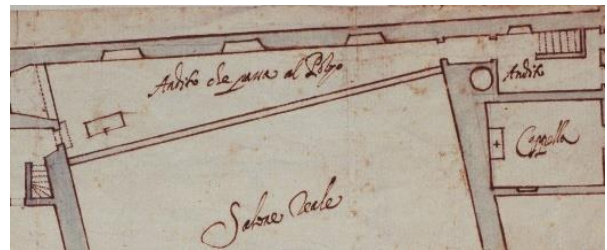 Andito che passa al Pozo
Andito
Cappella
Salone Reale